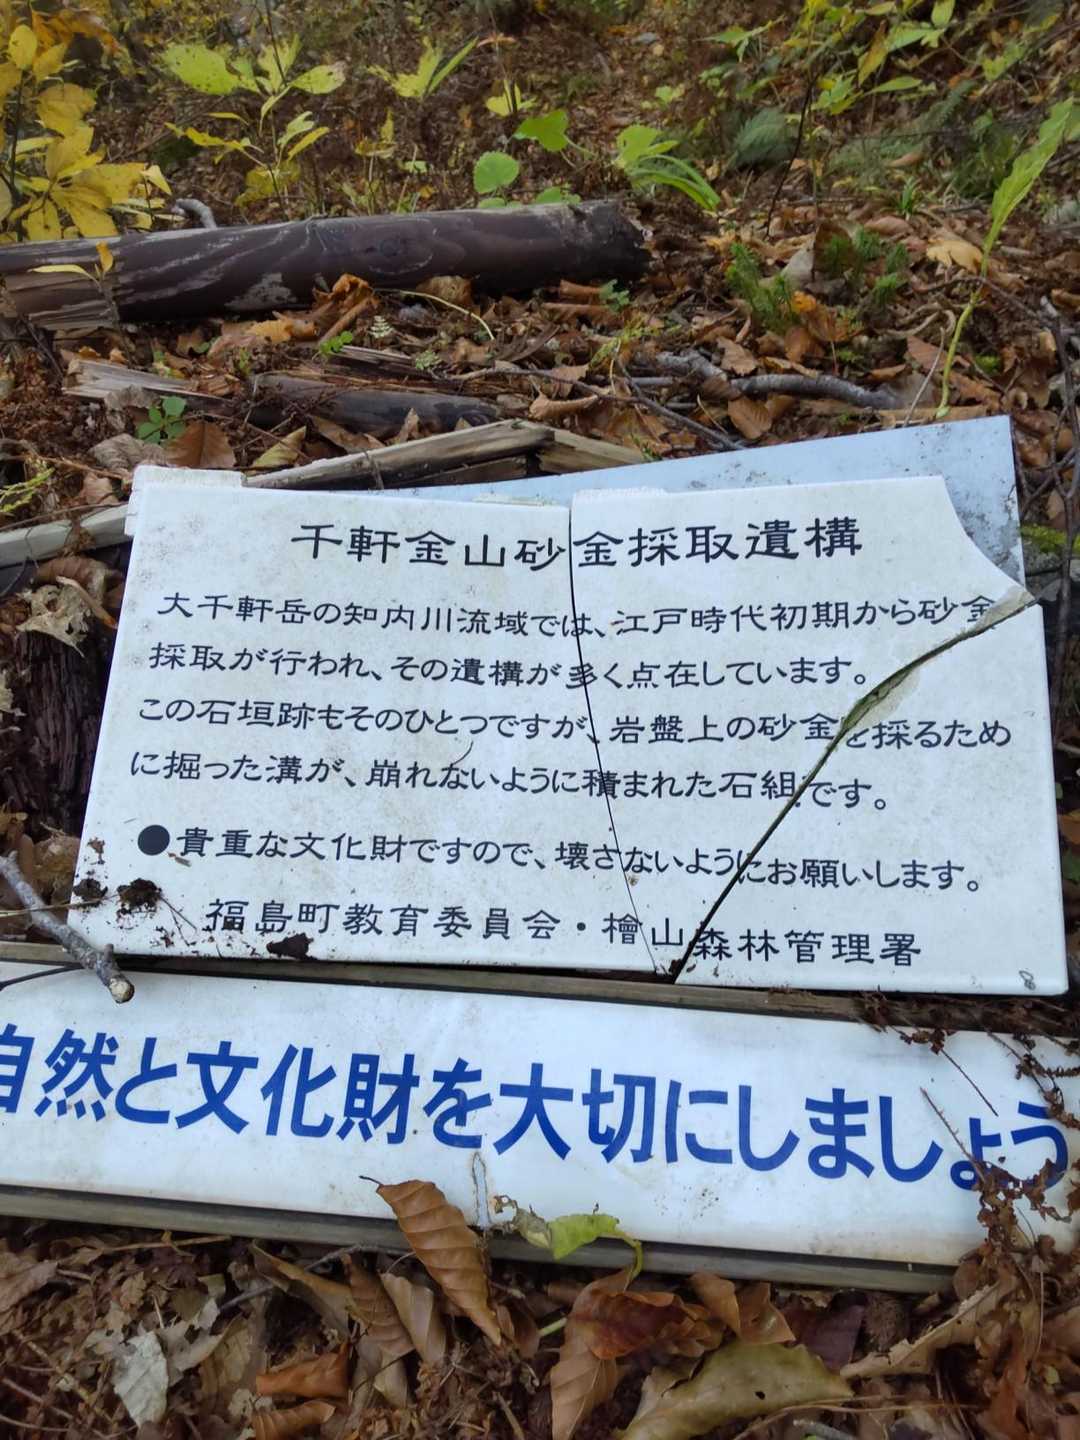 千軒金山砂金採取遺構
大千軒岳の知内川流域では、江戸時代初期から砂金
採取が行われ、その遺構が多く点在しています。
この石垣跡もそのひとつですが、岩盤上の砂金を採るため
に掘った溝が、崩れないように積まれた石組です。
●貴重な文化財ですので、壊さないようにお願いします。
福島町教育委員会・檜山森林管理署
自然と文化財を大切にしましょう